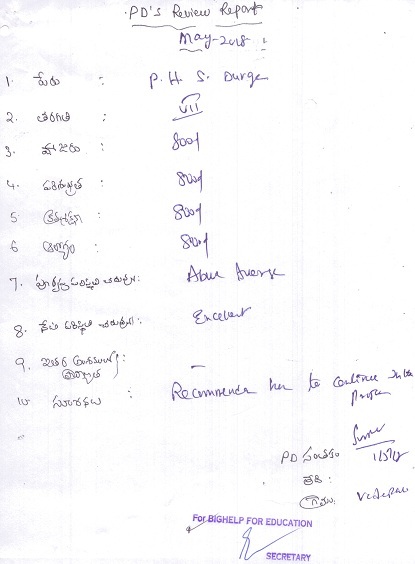 PD's Review Report
May-2018
1. పేరు : P. H. S. Durga
2. తరగతి : VII
3. హాజరు : good
4. పరిశుభ్రత : good
5. క్రమశిక్షణ : good
6. ఆరోగ్యం : good
7. పూర్వపు పరిస్థితి చదువులో : Above Average
8. నేటి పరిస్థితి చదువులో : Excellent
9. ఇతర అంశములలో : —
10 సూచనలు : Recommenda her to continue in the
PD సంతకం 1/5/18
తేది :
గ్రామం:
For BIGHELP FOR EDUCATION
SECRETARY